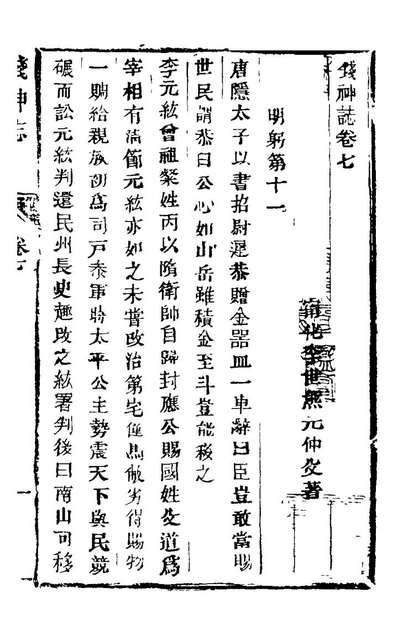 錢神誌卷七
寧化李世熊元仲父著
明躬第十一
唐隱太子以書招尉遲恭贈金器皿一車辭曰臣豈敢當賜
世民謂恭曰公心如山岳雖積金至斗豈能移之
李元紘曾祖粲姓丙以隋衛帥自歸封應公賜國姓父道爲
宰相有清節元紘亦如之未嘗改治第宅僮馬敝劣得賜物
一賙給親族初爲司戶參軍時太平公主勢震天下與民競
碾而訟元紘判還民州長史趣改之紘署判後曰南山可移
錢神誌
卷七
一